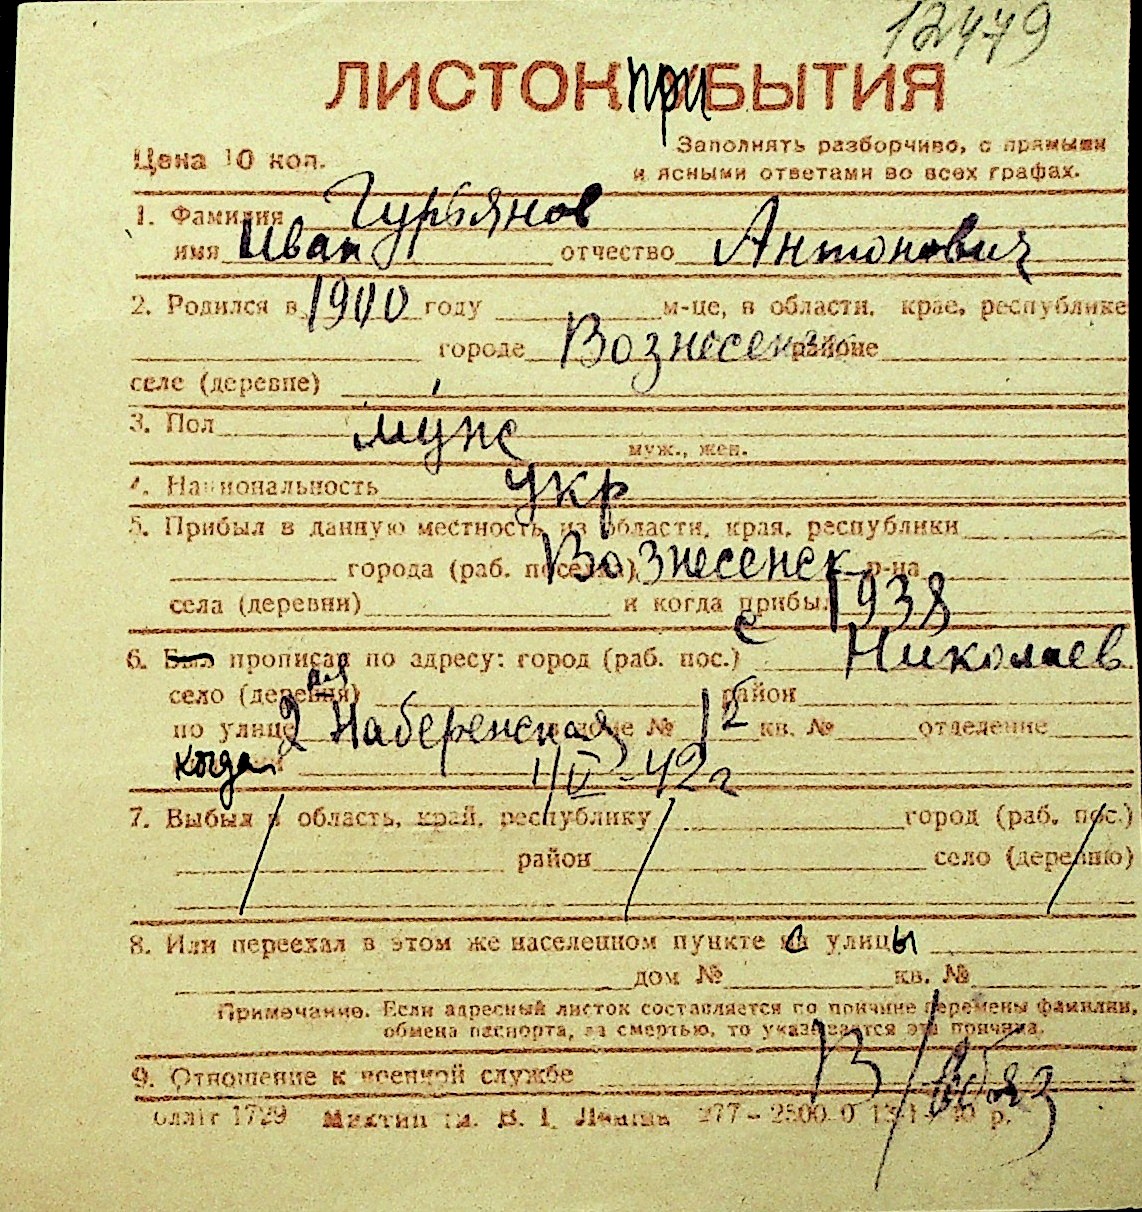 12479
ЛИСТОК ПРИБЫТИЯ
Цена 10 коп.
Заполнять разборчиво, с прямыми
и ясными ответами во всех графах.
1. Фамилия Гурьянов
имя Иван отчество Антонович
2. Родился в 1900 году м-це, в области, крае, республике
городе Вознесенск районе
селе (деревне)
3. Пол муж
муж., жен.
4. Национальность укр
5. Прибыл в данную местность из области, края, республики
города (раб. поселка) Вознесенск р-на
села (деревни) и когда прибыл 1938
6. Был прописан по адресу: город (раб. пос.) Николаев
село (деревня) район
по улице 2 Набережная доме № 12 кв. № отделение
когда 1/IV-42 г
7. Выбыл в область, край, республику город (раб. пос.)
район село (деревню)
8. Или переехал в этом же населенном пункте с улицы
дом № кв. №
Примечание. Если адресный листок составляется по причине перемены фамилии,
обмена паспорта, за смертью, то указывается эта причина.
9. Отношение к военной службе В/обяз
1729 В. І. Леніна 277 – 2500.0